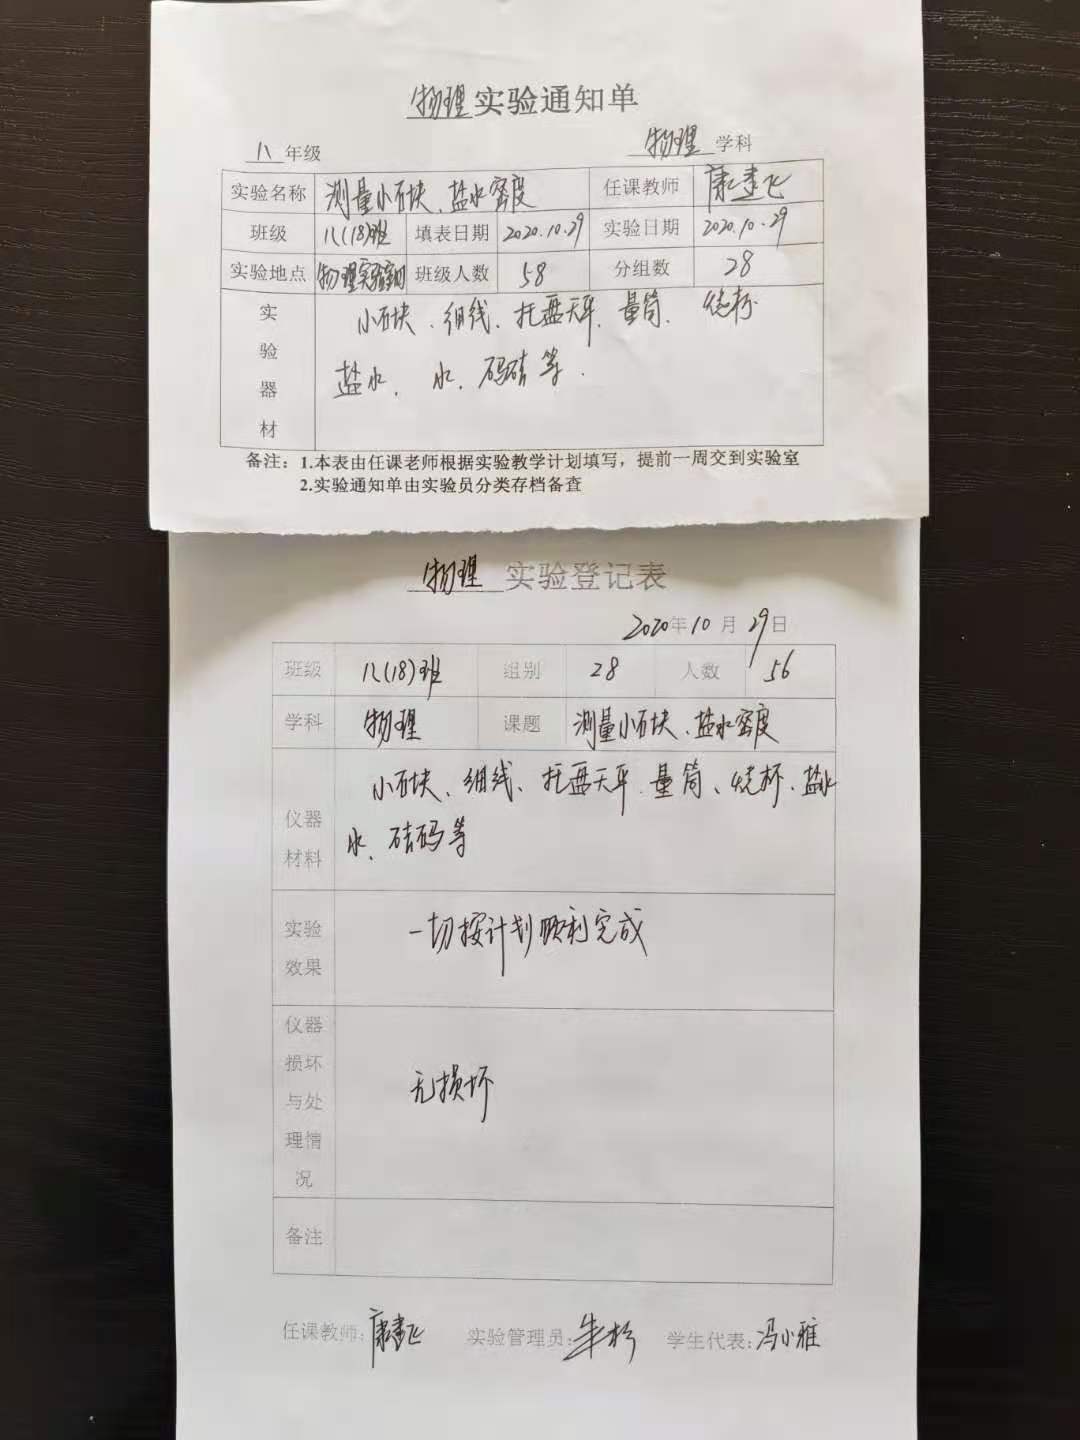 物理实验通知单
八年级 物理学科
实验名称 测量小石块、盐水密度 任课教师 康建飞
班级 八(18)班 填表日期 2020.10.29 实验日期 2020.10.29
实验地点 物理实验室 班级人数 58 分组数 28
实验器材 小石块、细线、托盘天平、量筒、烧杯
盐水、水、码砝等.
备注:1.本表由任课老师根据实验教学计划填写，提前一周交到实验室
2.实验通知单由实验员分类存档备查
物理 实验登记表
2020年10月29日
班级 八(18)班 组别 28 人数 56
学科 物理 课题 测量小石块、盐水密度
仪器材料 小石块、细线、托盘天平、量筒、烧杯、盐水
水、砝码等
实验效果 一切按计划顺利完成
仪器损坏与处理情况 无损坏
备注
任课教师:康建飞 实验管理员: 学生代表:冯小雅